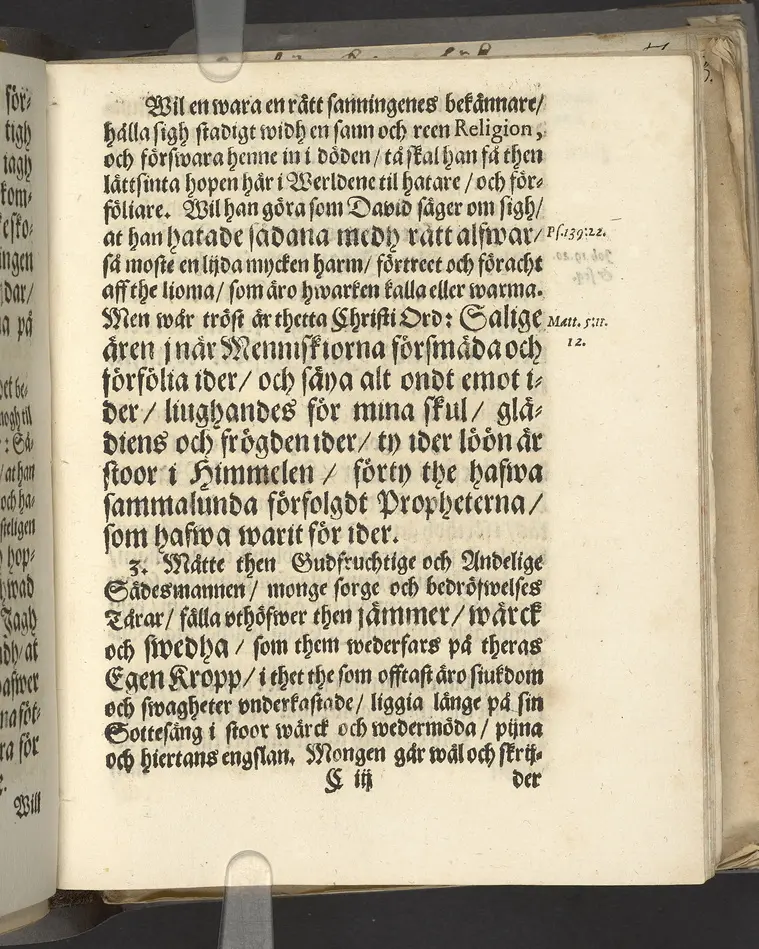 för-
tigh
iagh
kom-
ingen
dar/
na på
at han
och ha-
hop-
Jagh
ra för
Will
Wil en wara en rätt sanningenes bekännare/
hålla sigh stadigt widh en sann och reen Religion,
och förswara henne in i döden/ tå skal han få then
lättsinta hopen här i Werldene til hatare/ och för-
föliare. Wil han göra som David säger om sigh/
at han hatade sådana medh rätt alfwar/ Ps. 139:22.
så moste en lijda mycken harm/ förtreet och föracht
aff the lioma/ som äro hwarken kalla eller warma.
Men wår tröst är thetta Christi Ord: Salige Matt. 5:11.
ären j när Menniskiorna försmäda och 12.
förfölia ider/ och säya alt ondt emot i-
der/ liughandes för mina skul/ glä-
diens och frögden ider/ ty ider löön är
stoor i Himmelen/ förty the hafwa
sammalunda förfolgdt Propheterna/
som hafwa warit för ider.
3. Måtte then Gudfruchtige och Andelige
Sädesmannen/ monge sorge och bedröfwelses
Tårar/ fälla vthöfwer then jämmer/ wärck
och swedha/ som them wederfars på theras
Egen Kropp/ i thet the som offtast äro siukdom
och swagheter vnderkastade/ liggia länge på sin
Sottesäng i stoor wärck och wedermöda/ pijna
och hiertans engslan. Mongen går wäl och skrij-
C iij der